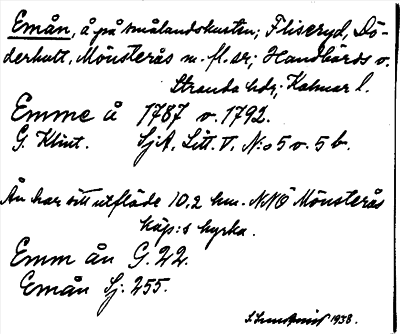 Emån, å på smålandskusten; Fliseryd, Dö-
derhult, Mönsterås m. fl. sr; Handbörds o.
Stranda hdr; Kalmar l.
Emme å 1787 o. 1792.
G. Klint. SjA. Litt. V. N:o 5 o. 5 b.
Ån har sitt utflöde 10,2 km. NNÖ Mönsterås
köp:s kyrka.
Emm ån G. 22.
Emån Sj. 255.
1938.